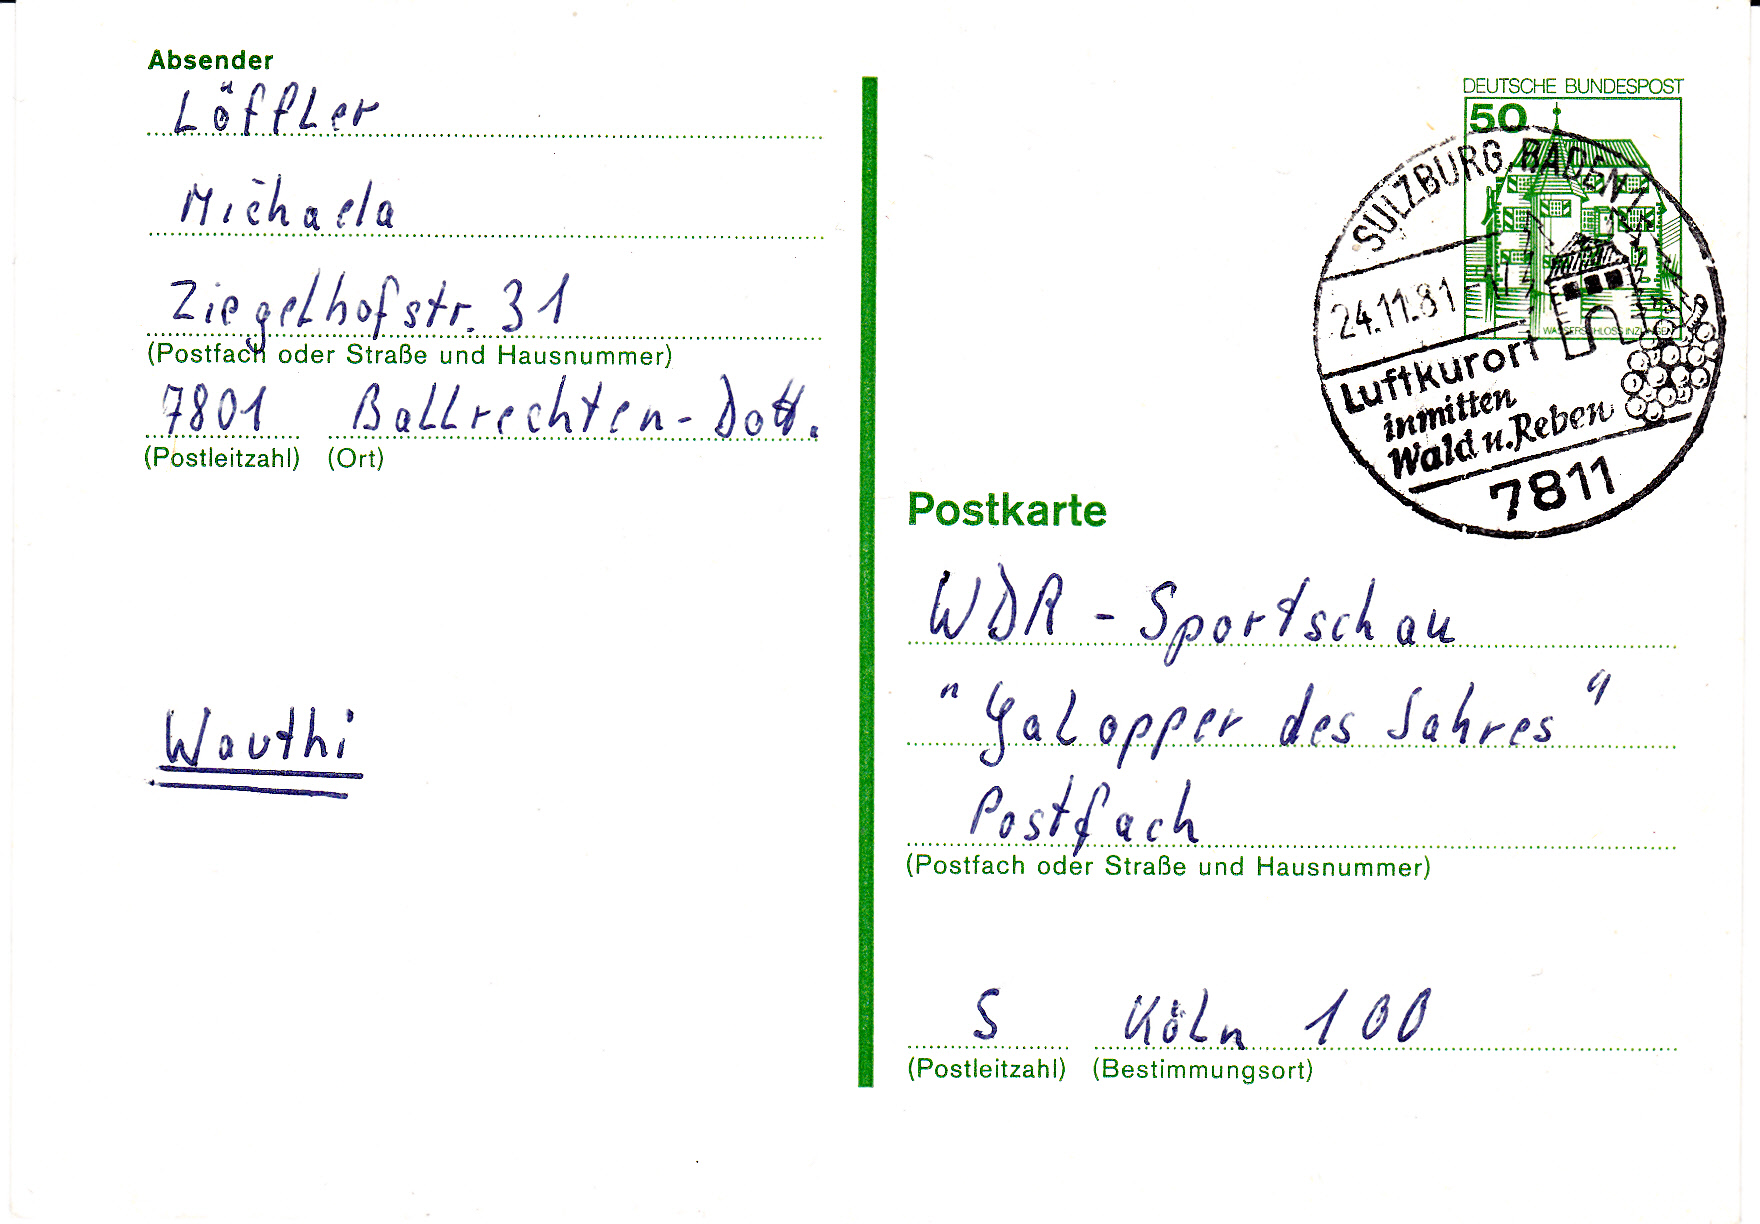 Absender
Löffler
Michaela
Ziegelhofstr. 31
(Postfach oder Straße und Hausnummer)
7801 Ballrechten-Dott.
(Postleitzahl) (Ort)
Wauthi
DEUTSCHE BUNDESPOST
50
WASSERSCHLOSS INZLINGEN
SULZBURG, BADEN 1
24.11.81
Luftkurort
inmitten
Wald u. Reben
7811
Postkarte
WDR - Sportschau
"Galopper des Jahres"
Postfach
(Postfach oder Straße und Hausnummer)
5 Köln 100
(Postleitzahl) (Bestimmungsort)